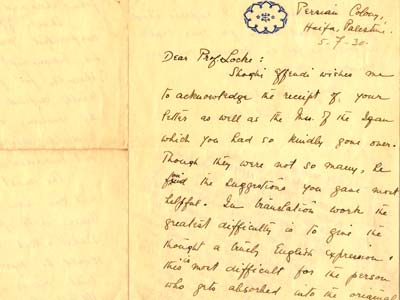 Persian Colony,
Haifa, Palestine.
5-7-30-
Dear Prof. Locke:
Shoghi Effendi wishes me
to acknowledge the receipt of your
letter as well as the Mss. of the Iqan
which you had so kindly gone over.
Though they were not so many, he
found the suggestions you gave most
helpful. In translation work the
greatest difficulty is to give the
thought a truly English expression.
this is most difficult for the person
who gets absorbed into the original